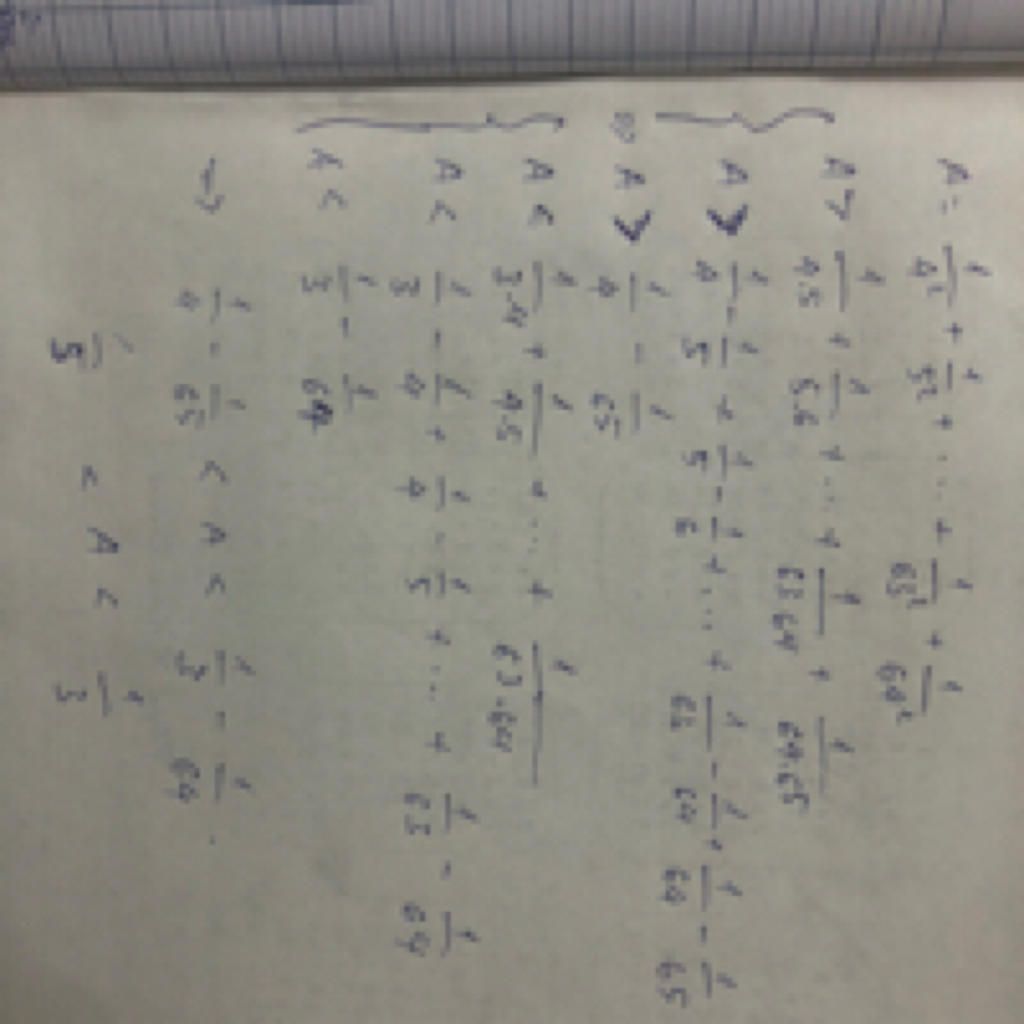 A = 1/4² + 1/5² + ... + 1/63² + 1/64²
A > 1/4.5 + 1/5.6 + ... + 1/63.64 + 1/64.65
A > 1/4 - 1/5 + 1/5 - 1/6 + ... + 1/63 - 1/64 + 1/64 - 1/65
A > 1/4 - 1/65
A < 1/3.4 + 1/4.5 + ... + 1/63.64
A < 1/3 - 1/4 + 1/4 - 1/5 + ... + 1/63 - 1/64
A < 1/3 - 1/64
→ 1/4 - 1/65 < A < 1/3 - 1/64.
1/5 < A < 1/3